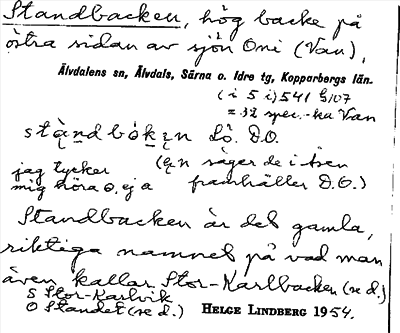 Standbacken, hög backe på
östra sidan av sjön Oni (Van),
Älvdalens sn, Älvdals, Särna o. Idre tg, Kopparbergs län.
(i 5 i) 541
= 32 spec.-ka Van
stąndbökęn Lå. D.O.
jag tycker
mig höra o, ej a
(ęn säger de i Åsen
framhåller D.O.)
Standbacken är det gamla,
riktiga namnet på vad man
även kallar Stor-Karlbacken (se d.)
S Stor-Karlvik
O Standet (se d.)
HELGE LINDBERG 1954.